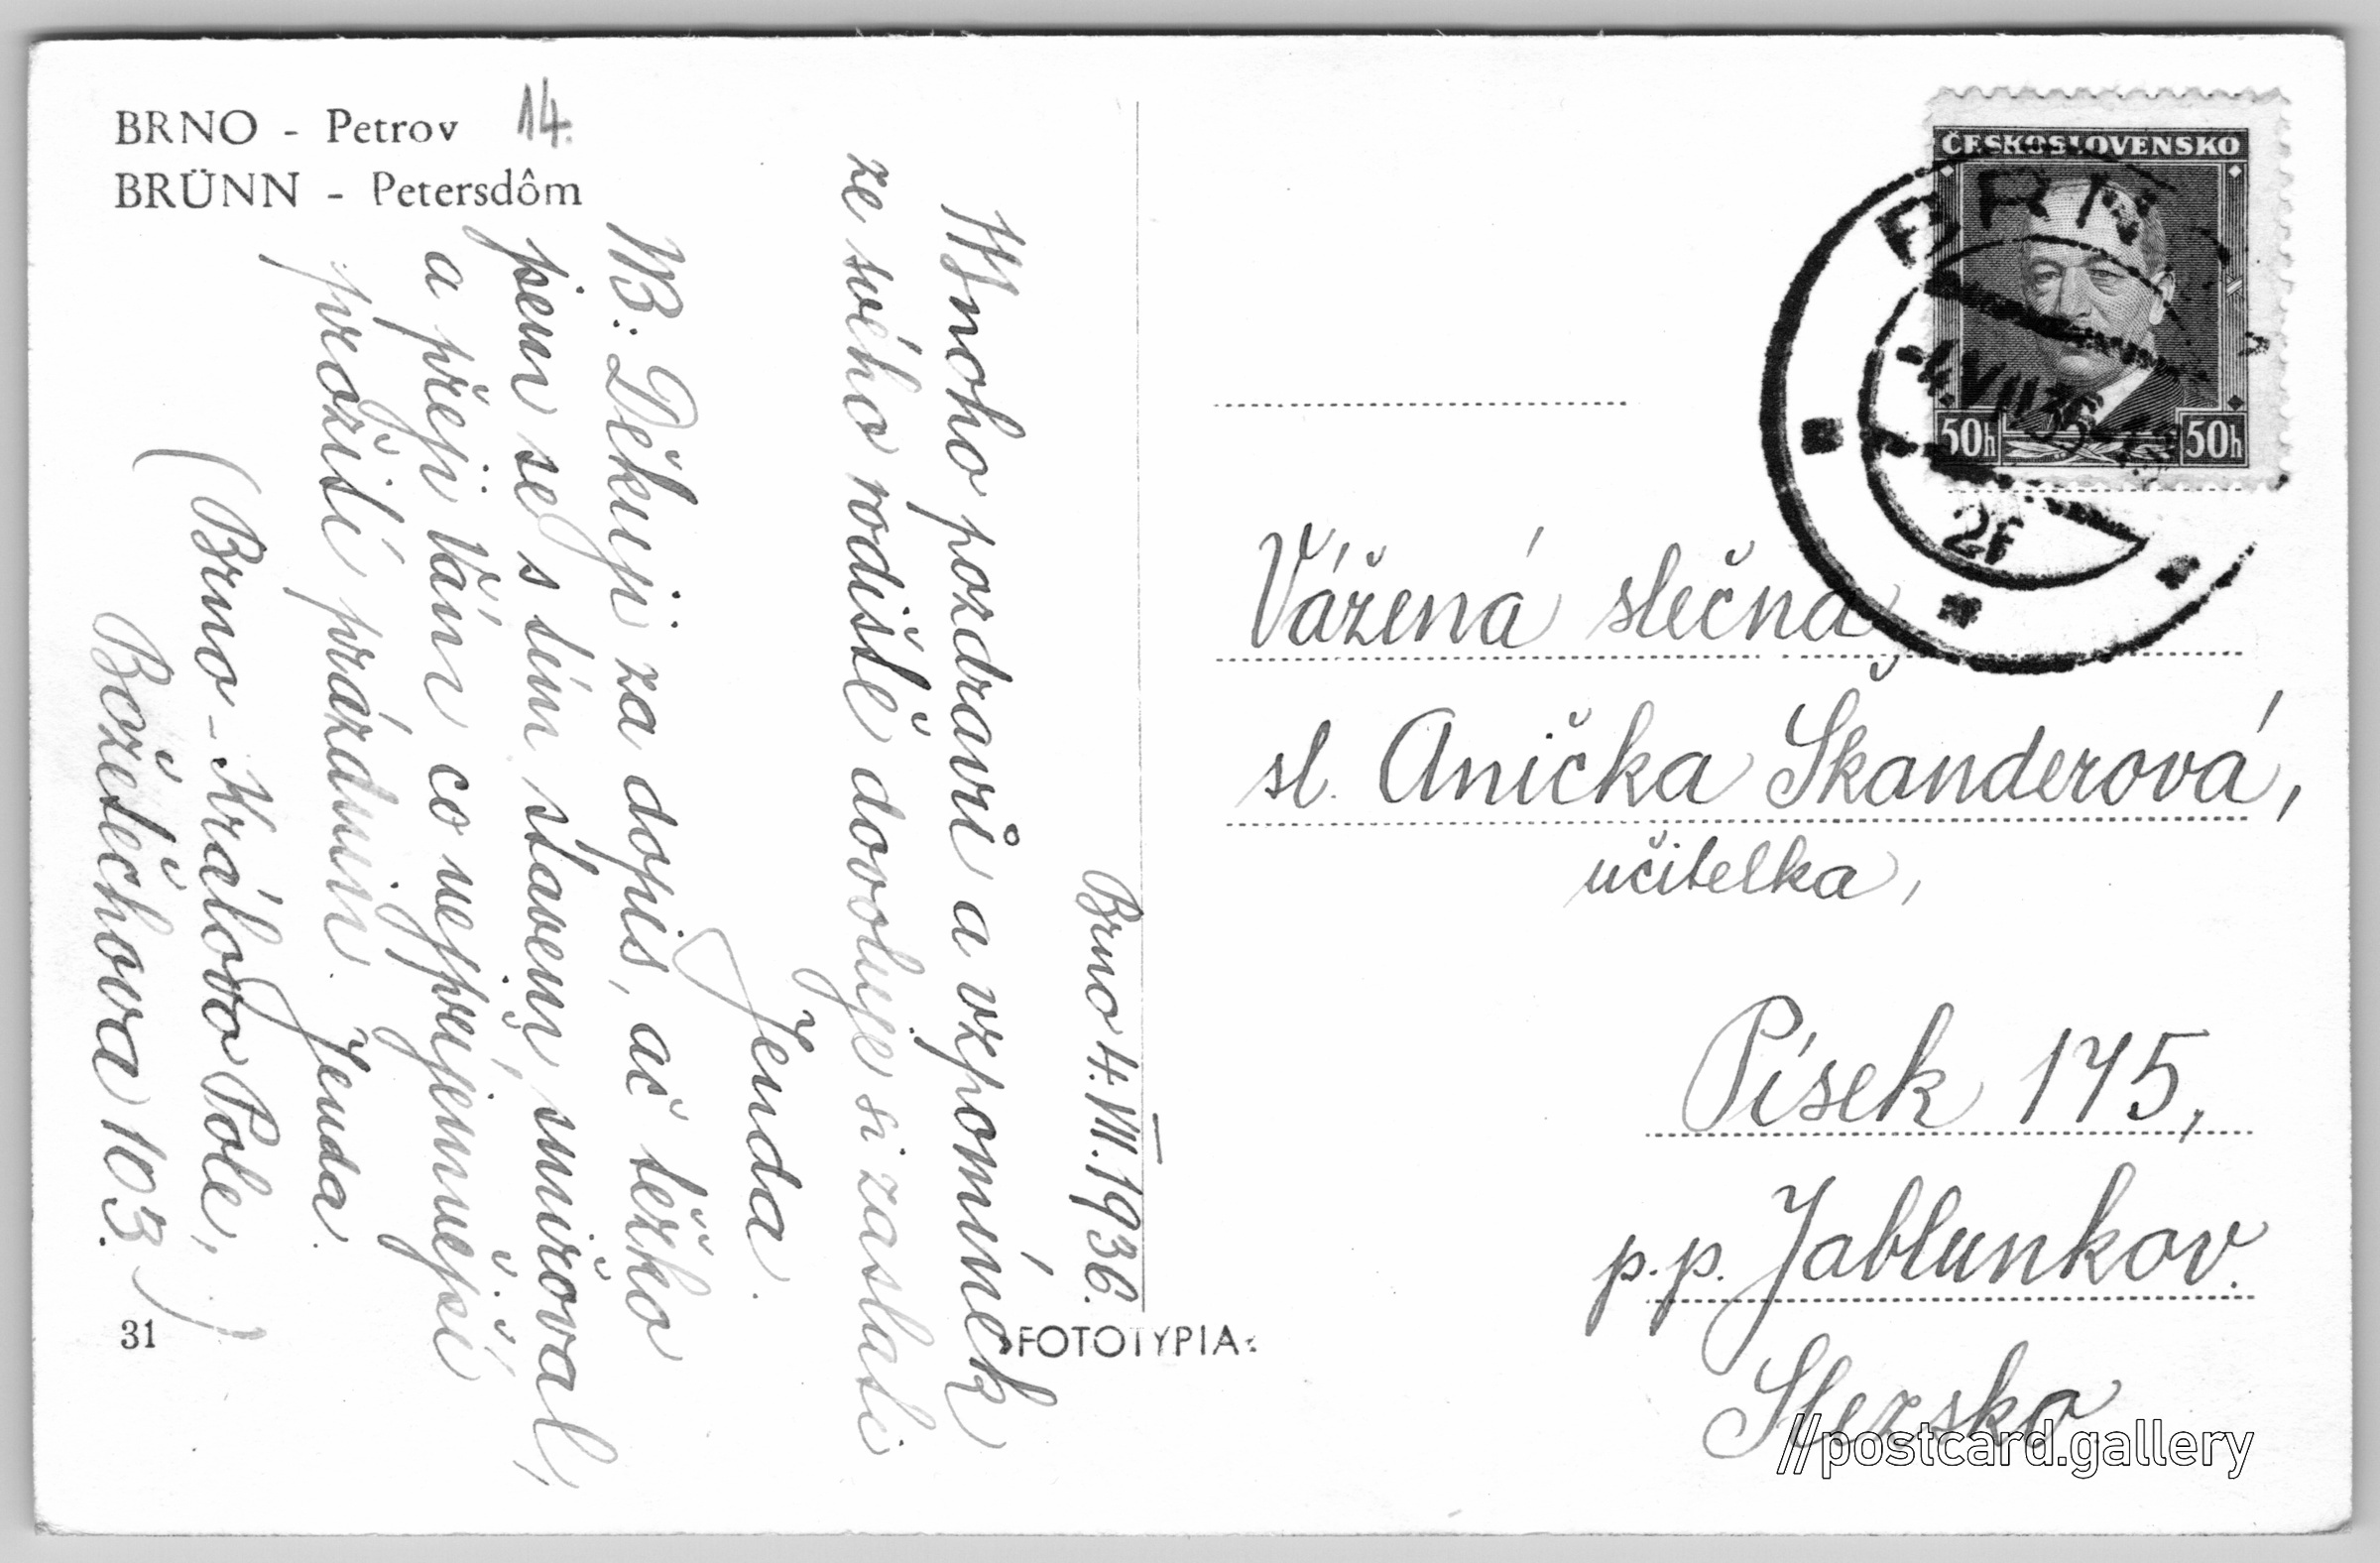 BRNO - Petrov 14.
BRÜNN - Petersdôm
Brno 4.VIII.1936.
Mnoho pozdravů a vzpomínek
ze svého rodiště dovoluje si zaslati
Jenda.
NB. Děkuji za dopis, ač těžko
jsem se s tím stavem smiřoval,
a přeji Vám co nejpříjemnější
prožití prázdnin. Jenda.
(Brno-Královo Pole,
Božetěchova 103.)
31
FOTOTYPIA
ČESKOSLOVENSKO
50h 50h
BRN
-4.VIII.36
2f
Vážená slečna
sl. Anička Škanderová,
učitelka,
Písek 175,
p.p. Jablunkov.
Slezsko
//postcard.gallery